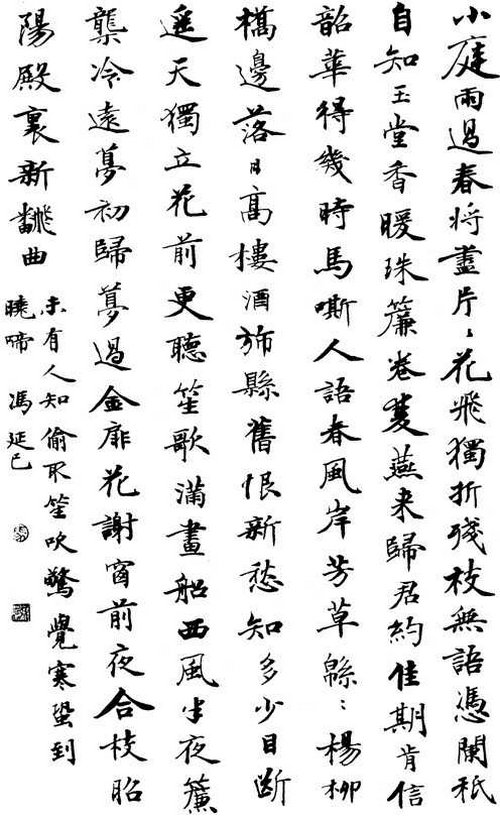 小庭雨過春將盡片〻花飛獨折殘枝無語憑闌祇
自知玉堂香暖珠簾卷雙燕来歸君約佳期肯信
韶華得幾時馬嘶人語春風岸芳草緜〻楊柳
橋邊落日高樓酒旆縣舊恨新愁知多少目斷
遥天獨立花前更聽笙歌滿畫船西風半夜簾
櫳冷遠夢初歸夢過金扉花謝窗前夜合枝昭
陽殿裏新飜曲
未有人知偷取笙吹驚覺寒蛩到
曉啼 馮延巳